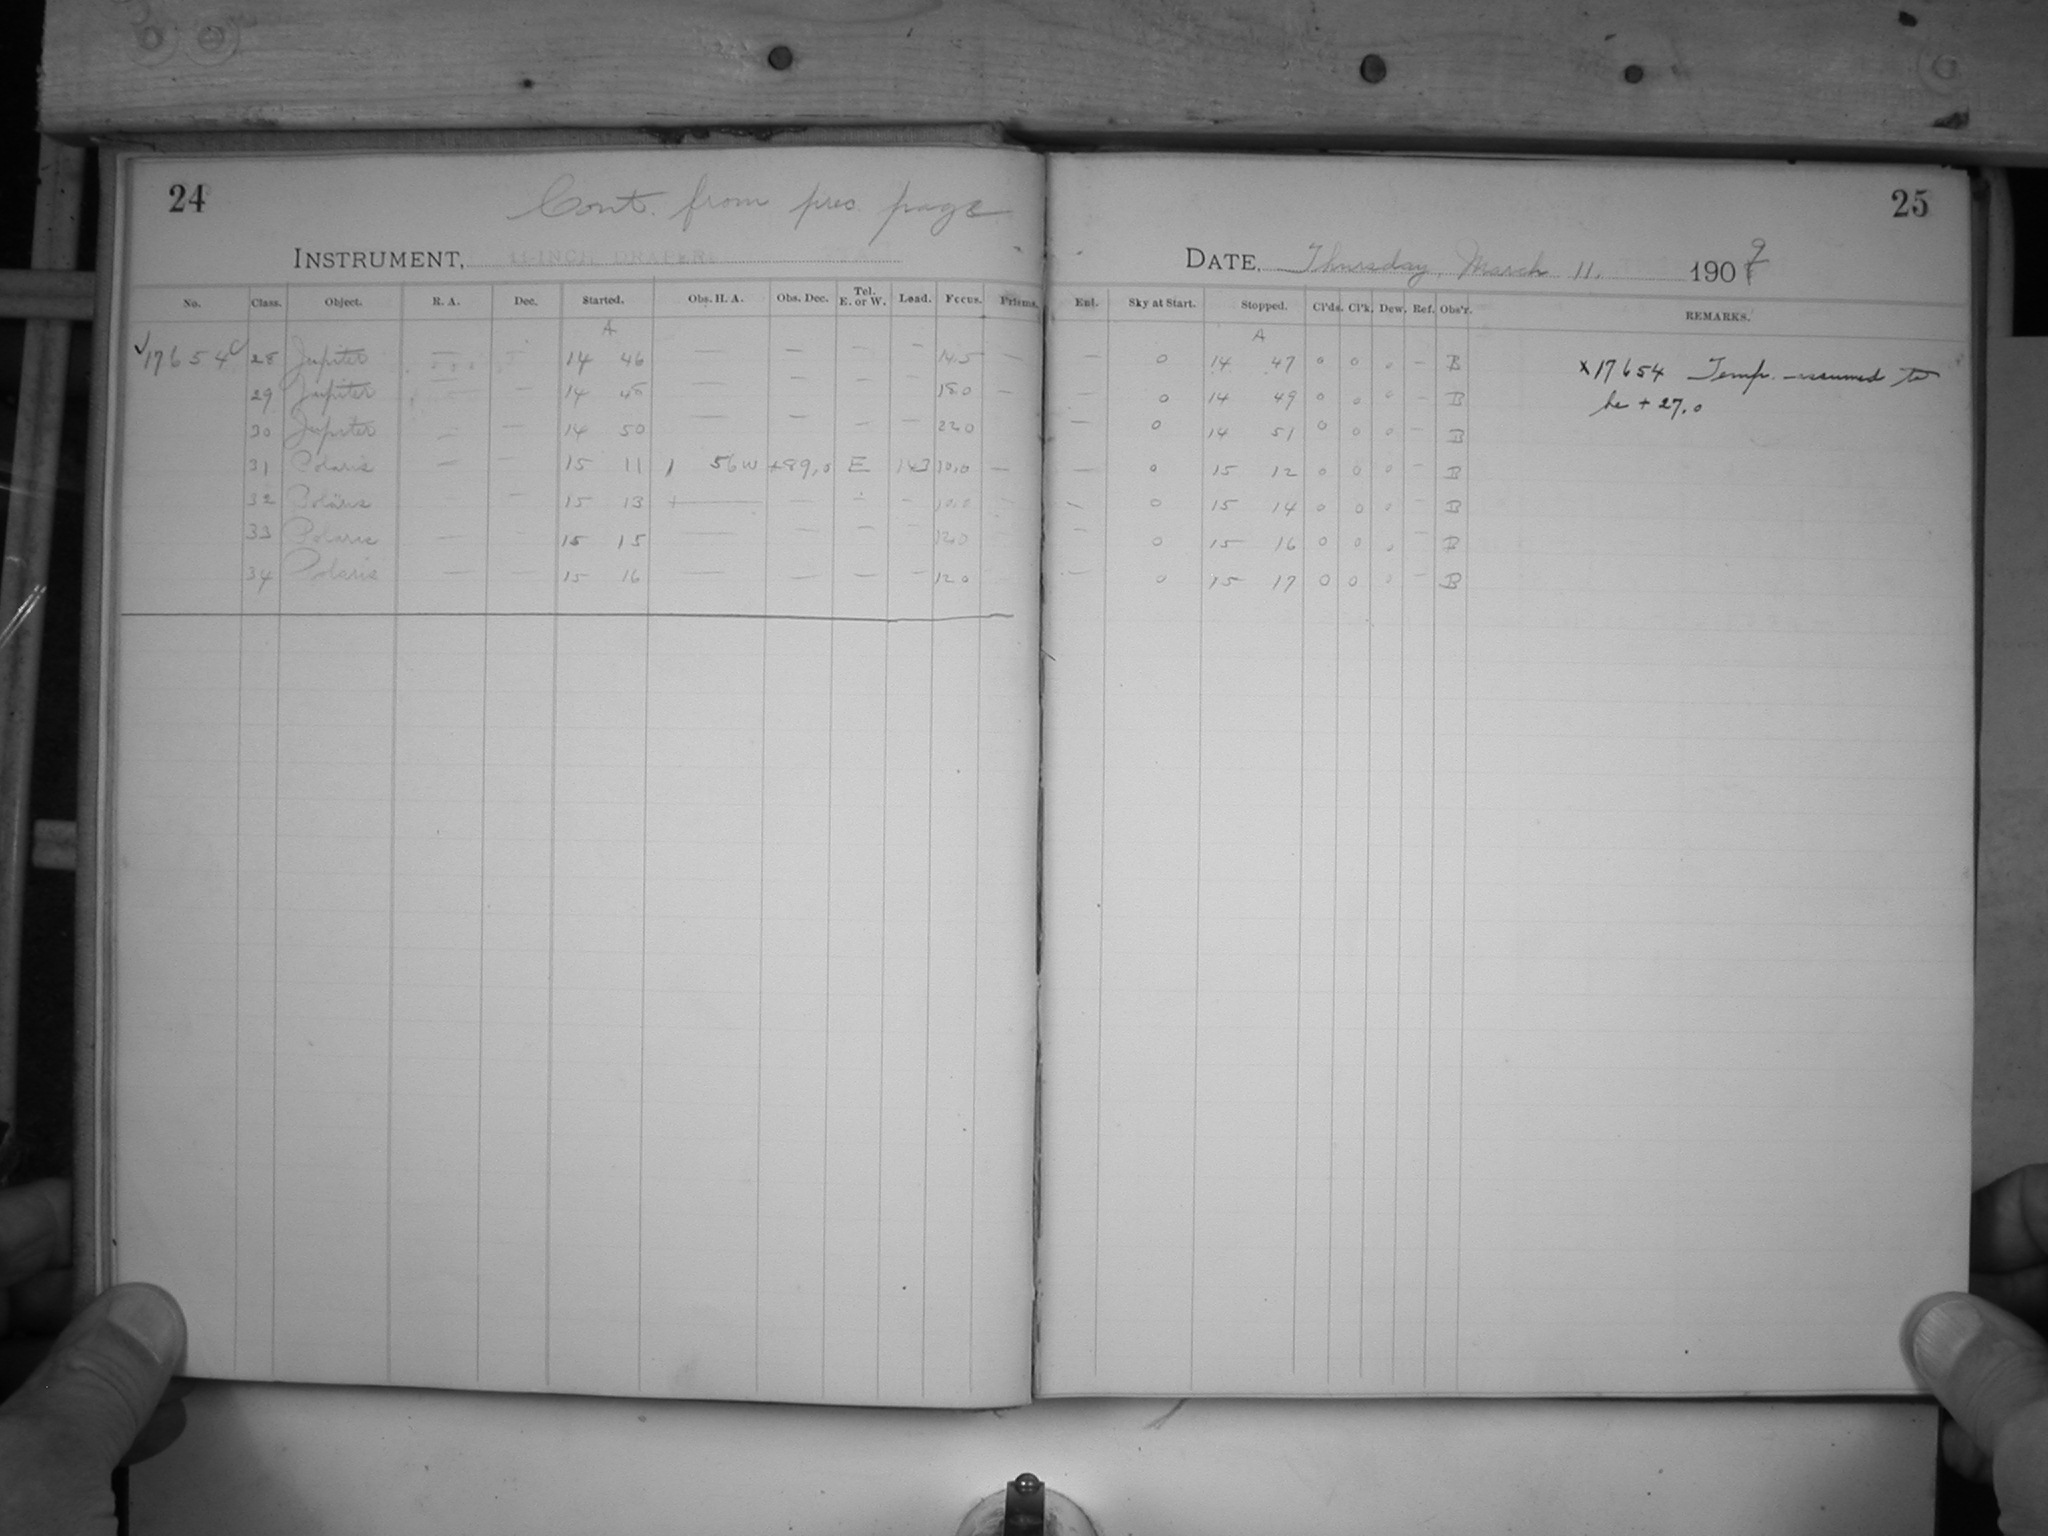 24
Cont. from prec. page
INSTRUMENT, 11-INCH DRAPER.
No. Class. Object. R. A. Dec. Started. Obs. H. A. Obs. Dec. Tel. E. or W. Load. Focus. Prisms.
A
✓17654 28 Jupiter — — 14 46 — — — — 14.5 —
29 Jupiter — — 14 48 — — — — 18.0 —
30 Jupiter — — 14 50 — — — — 22.0
31 Polaris — — 15 11 1 56W +89.0 E 143 10.0 —
32 Polaris — 15 13 — — — — 10.0 —
33 Polaris — — 15 15 — — — — 12.0
34 Polaris — — 15 16 — — — — 12.0
25
DATE, Thursday, March 11. 1909
Ent. Sky at Start. Stopped. Cl'ds. Cl'k. Dew. Ref. Obs'r. REMARKS.
A
— 0 14 47 0 0 0 — B x17654 Temp. assumed to
— 0 14 49 0 0 0 — B be + 27.0
— 0 14 51 0 0 0 — B
— 0 15 12 0 0 0 — B
— 0 15 14 0 0 0 — B
— 0 15 16 0 0 0 — B
— 0 15 17 0 0 0 — B